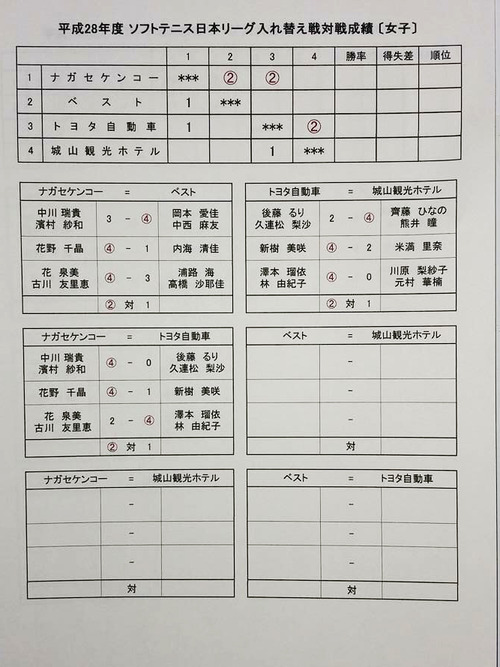 平成28年度 ソフトテニス日本リーグ入れ替え戦対戦成績〔女子〕
1 2 3 4 勝率 得失差 順位
1 ナガセケンコー *** ② ②
2 ベスト 1 ***
3 トヨタ自動車 1 *** ②
4 城山観光ホテル 1 ***
ナガセケンコー = ベスト
中川 瑞貴 濱村 紗和 3 - ④ 岡本 愛佳 中西 麻友
花野 千晶 ④ - 1 内海 清佳
花 泉美 古川 友里恵 ④ - 3 浦路 海 高橋 沙耶佳
② 対 1
トヨタ自動車 = 城山観光ホテル
後藤 るり 久連松 梨沙 2 - ④ 齊藤 ひなの 熊井 瞳
新樹 美咲 ④ - 2 米満 里奈
澤本 瑠依 林 由紀子 ④ - 0 川原 梨紗子 元村 華楠
② 対 1
ナガセケンコー = トヨタ自動車
中川 瑞貴 濱村 紗和 ④ - 0 後藤 るり 久連松 梨沙
花野 千晶 ④ - 1 新樹 美咲
花 泉美 古川 友里恵 2 - ④ 澤本 瑠依 林 由紀子
② 対 1
ベスト = 城山観光ホテル
-
-
-
対
ナガセケンコー = 城山観光ホテル
-
-
-
対
ベスト = トヨタ自動車
-
-
-
対